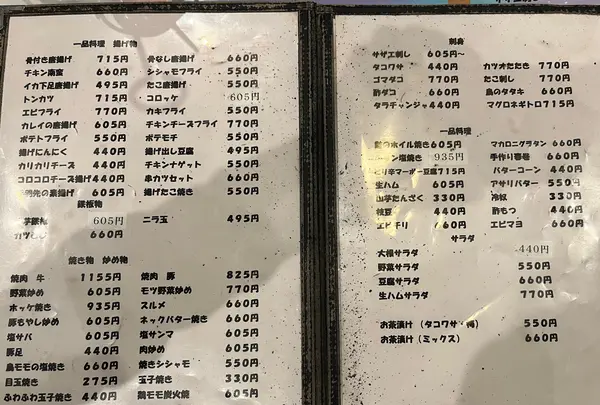 一品料理 揚げ物
骨付き唐揚げ 715円 骨なし唐揚げ 660円
チキン南蛮 660円 シシャモフライ 550円
イカ下足唐揚げ 495円 たこ唐揚げ 550円
トンカツ 715円 コロッケ 605円
エビフライ 770円 カキフライ 550円
カレイの唐揚げ 605円 チキンチーズフライ 770円
ポテトフライ 550円 ポテモチ 550円
揚げにんにく 440円 揚げ出し豆腐 495円
カリカリチーズ 440円 チキンナゲット 550円
コロコロチーズ揚げ 440円 串カツセット 660円
素揚げ 605円 揚げたこ焼き 550円
鉄板物
605円 ニラ玉 495円
660円
焼き物 炒め物
焼肉 牛 1155円 焼肉 豚 825円
野菜炒め 605円 モツ野菜炒め 770円
ホッケ焼き 935円 スルメ 660円
豚もやし炒め 605円 ネックバター焼き 660円
塩サバ 605円 塩サンマ 605円
豚足 440円 肉炒め 605円
鳥モモの塩焼き 660円 焼きシシャモ 550円
目玉焼き 275円 玉子焼き 330円
ふわふわ玉子焼き 440円 鶏モモ炭火焼 605円
刺身
サザエ刺し 605円~
タコワサ 440円 カツオたたき 770円
ゴマダコ 660円 たこ刺し 770円
酢ダコ 660円 鳥のタタキ 660円
タラチャンジャ 440円 マグロネギトロ 715円
一品料理
ホイル焼き 605円 マカロニグラタン 660円
塩焼き 935円 手作り春巻 660円
マーボー豆腐 715円 バターコーン 440円
生ハム 605円 アサリバター 550円
山芋たんざく 330円 冷奴 330円
枝豆 440円 酢もつ 440円
エビチリ 660円 エビマヨ 660円
サラダ
大根サラダ 440円
野菜サラダ 550円
豆腐サラダ 660円
生ハムサラダ 770円
お茶漬け (タコワサ・梅) 550円
お茶漬け (ミックス) 660円